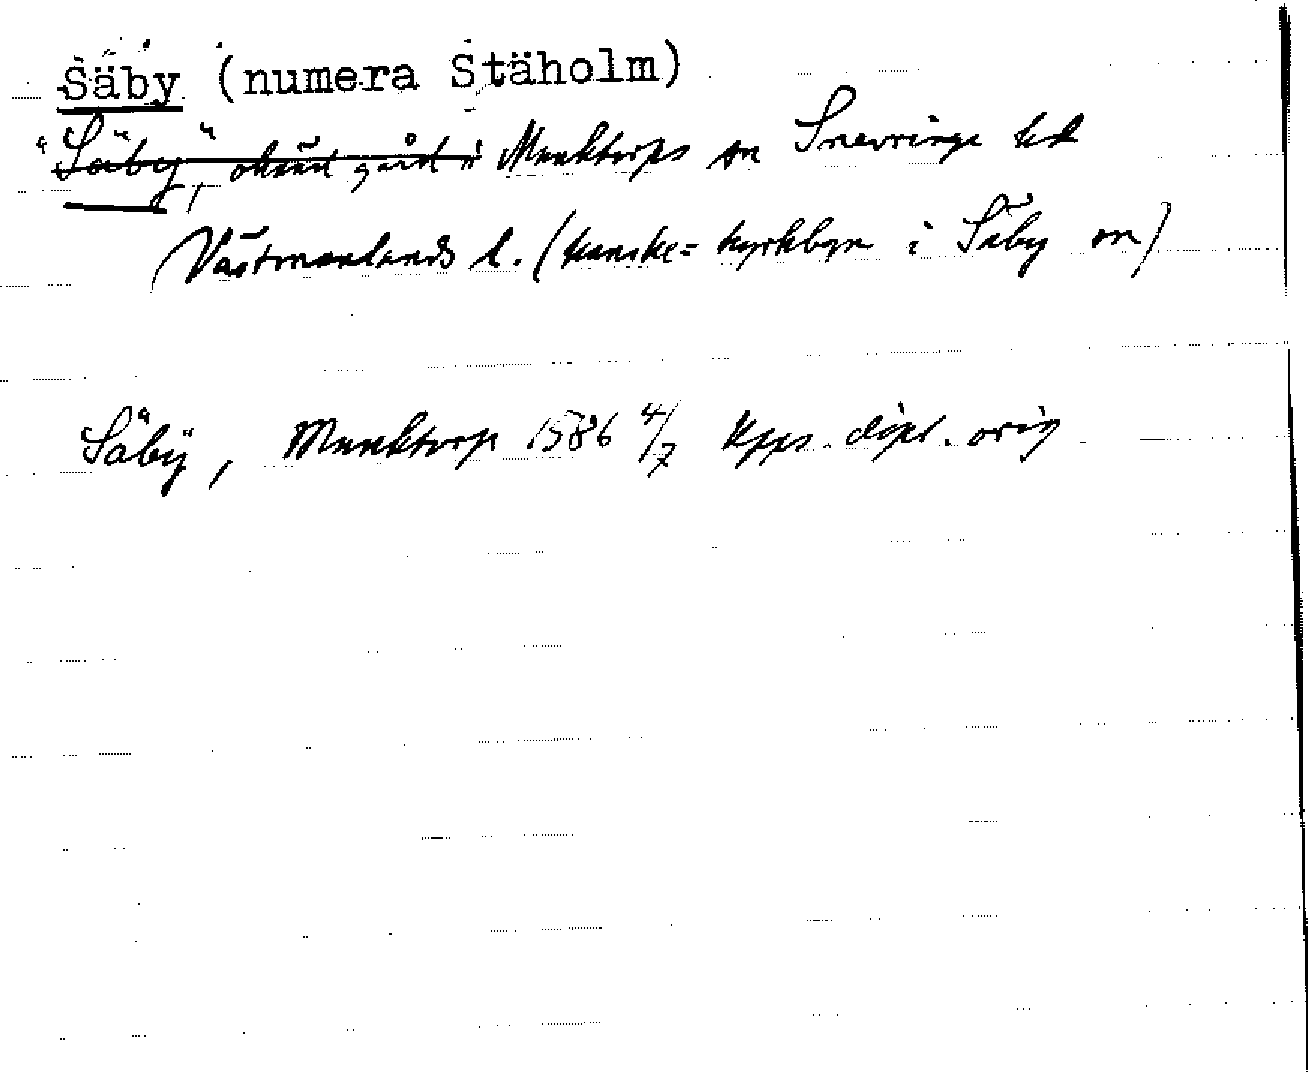 Säby (numera Stäholm)
"Säby", okänd gård i Munktorps sn Snevringe hd
Västmanlands l. (kanske = kyrkbyn i Säby sn)
Säby, Munktorp 1586 4/7 Kpps. dipl. orig